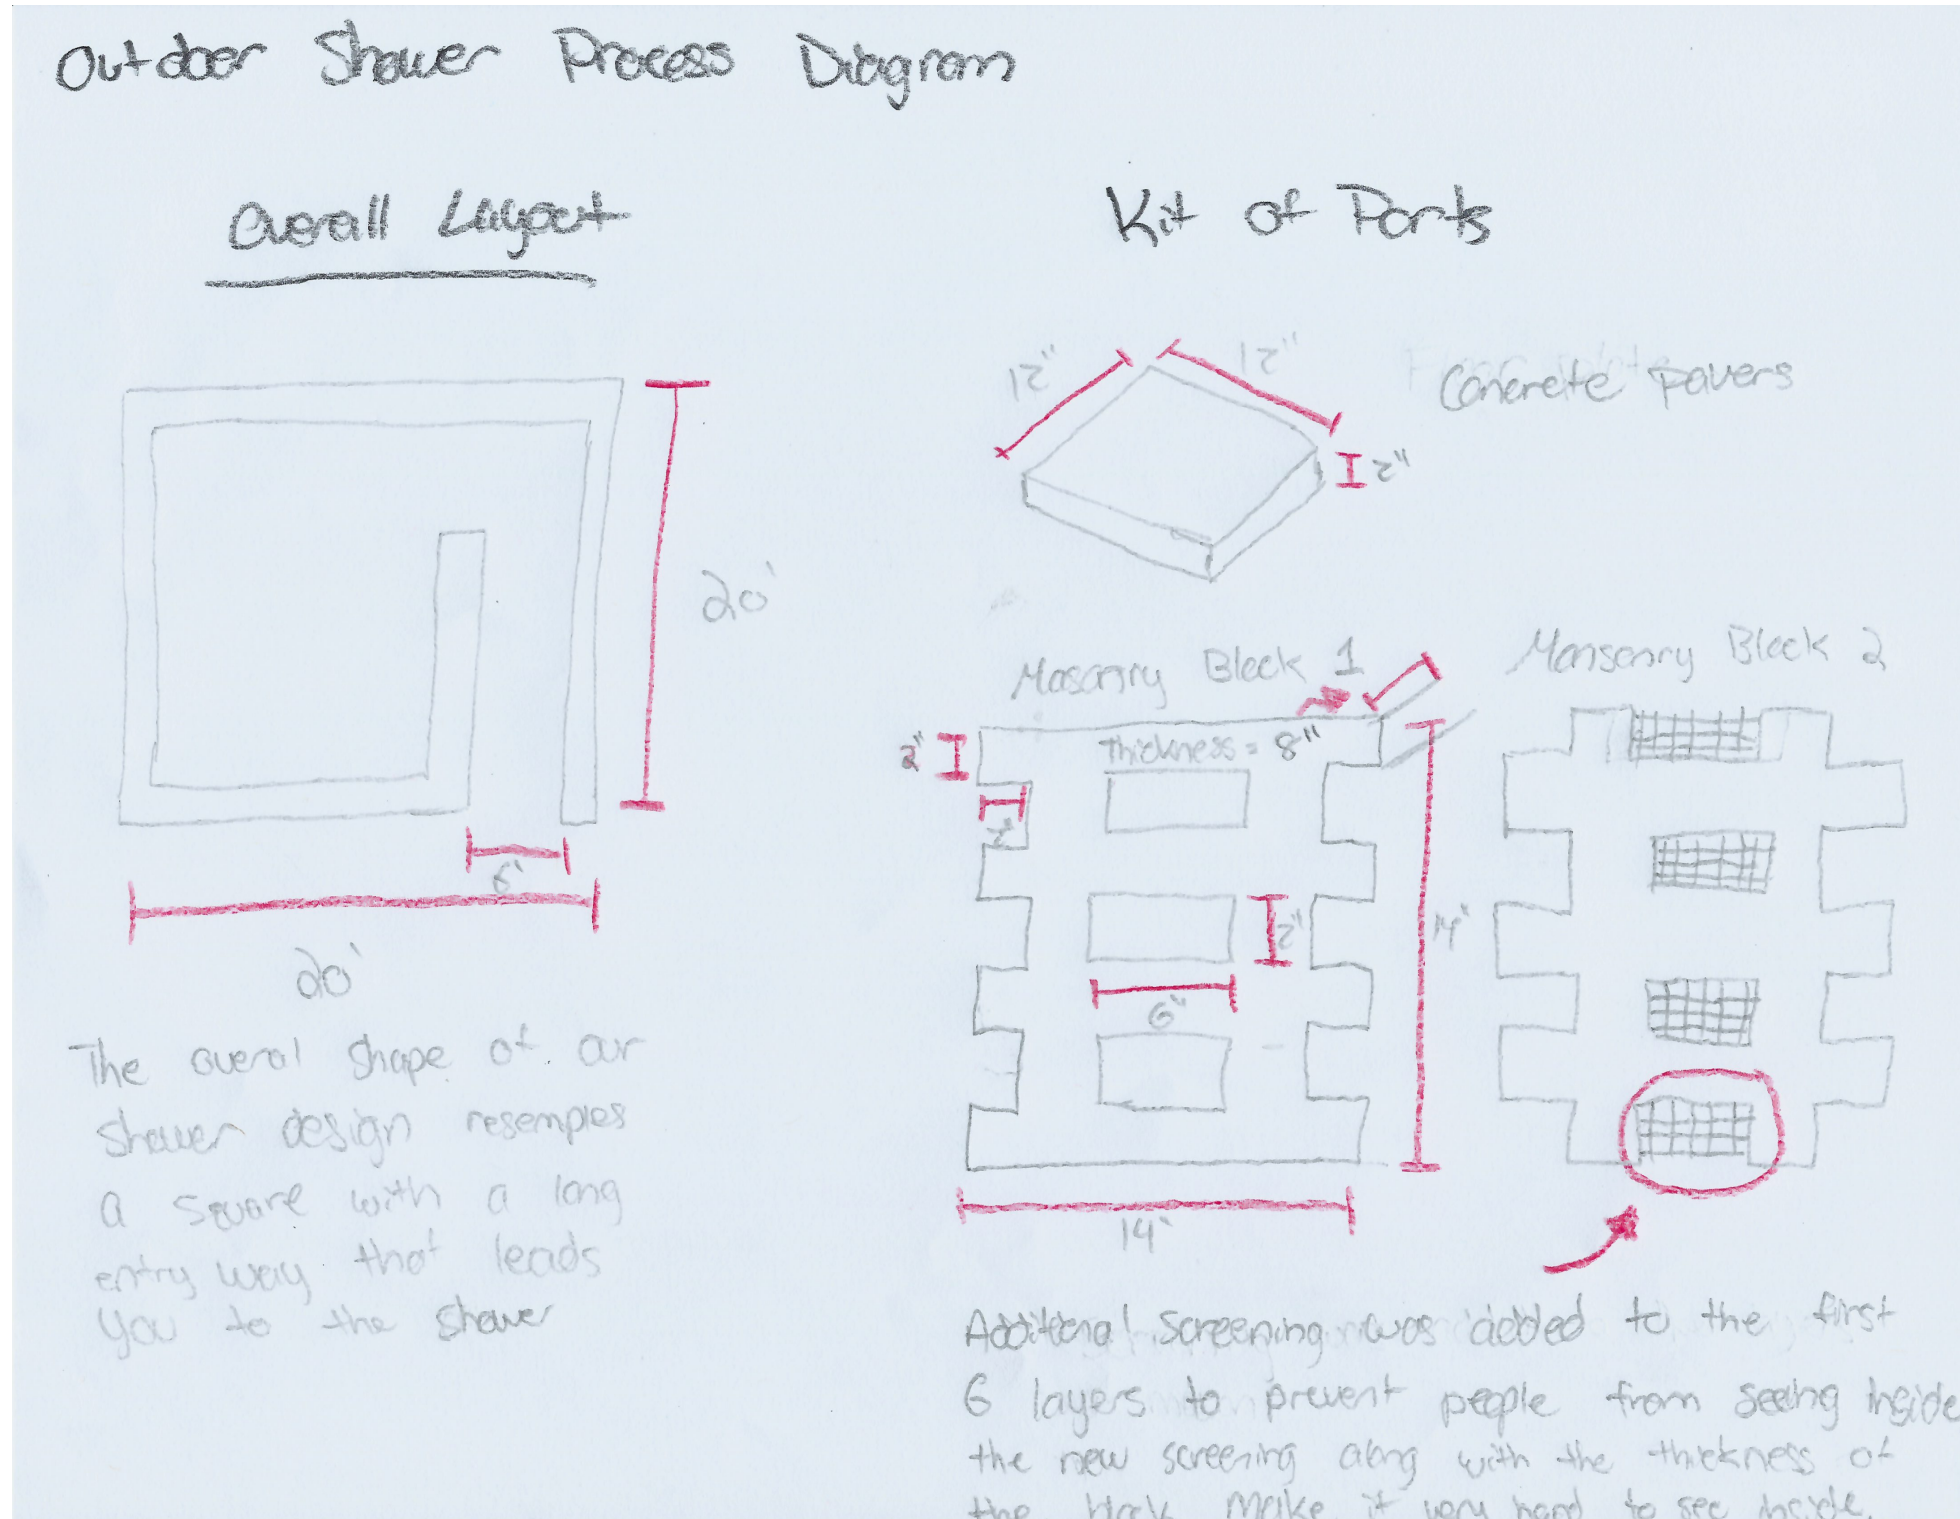 Outdoor Shower Process Diagram
Overall Layout
20'
6'
20'
The overal shape of our
shower design resemples
a square with a long
entry way that leads
you to the shower
Kit of Parts
12"
12"
2"
Concrete pavers
Masonry Block 1
thickness = 8"
2"
2"
14"
2"
6"
14"
Mansonry Block 2
Additional screening was added to the first
6 layers to prevent people from seeing inside
the new screening along with the thickness of
the block make it very hard to see inside.